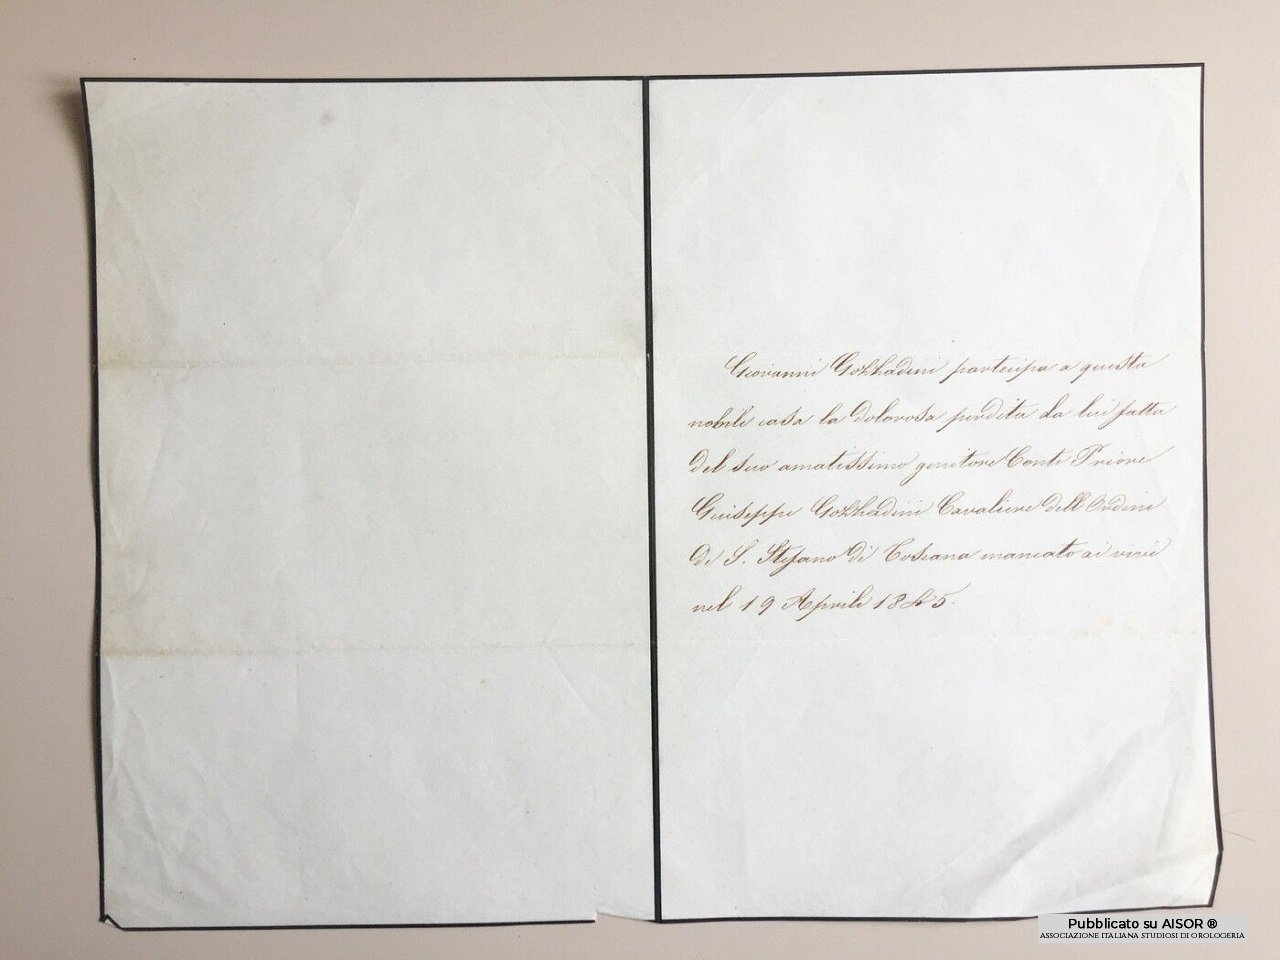 Giovanni Gozzadini partecipa a questa
nobile casa la dolorosa perdita da lui fatta
del suo amatissimo genitore Conte Priore
Giuseppe Gozzadini Cavaliere dell'Ordine
di S. Stefano di Toscana mancato ai vivi
nel 19 Aprile 1845.
Pubblicato su AISOR ®
ASSOCIAZIONE ITALIANA STUDIOSI DI OROLOGERIA